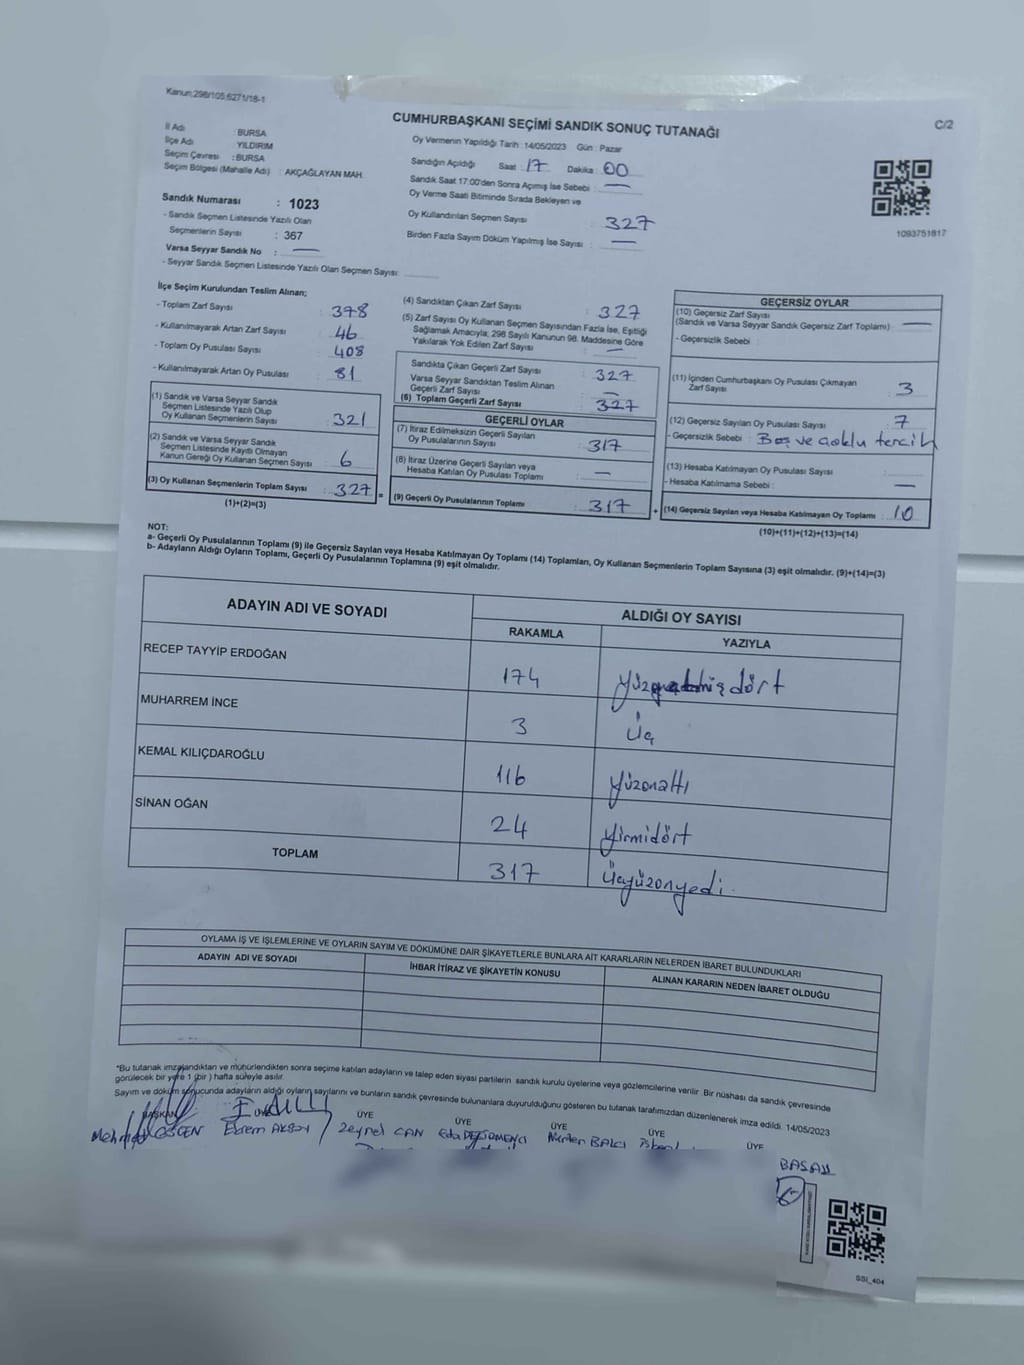 Kanun:298/105,6271/18-1
CUMHURBAŞKANI SEÇİMİ SANDIK SONUÇ TUTANAĞI
C/2
İl Adı : BURSA
İlçe Adı YILDIRIM
Seçim Çevresi : BURSA
Seçim Bölgesi (Mahalle Adı) : AKÇAĞLAYAN MAH.
Sandık Numarası : 1023
- Sandık Seçmen Listesinde Yazılı Olan
Seçmenlerin Sayısı : 367
Varsa Seyyar Sandık No : —
- Seyyar Sandık Seçmen Listesinde Yazılı Olan Seçmen Sayısı:
Oy Vermenin Yapıldığı Tarih :14/05/2023 Gün : Pazar
Sandığın Açıldığı Saat : 17 Dakika : 00
Sandık Saat 17:00'den Sonra Açımış İse Sebebi : —
Oy Verme Saati Bitiminde Sırada Bekleyen ve
Oy Kullandırılan Seçmen Sayısı : 327
Birden Fazla Sayım Döküm Yapılmış İse Sayısı : —
1093751817
İlçe Seçim Kurulundan Teslim Alınan;
- Toplam Zarf Sayısı : 378
- Kullanılmayarak Artan Zarf Sayısı : 46
- Toplam Oy Pusulası Sayısı : 408
- Kullanılmayarak Artan Oy Pusulası : 81
(1) Sandık ve Varsa Seyyar Sandık
Seçmen Listesinde Yazılı Olup
Oy Kullanan Seçmenlerin Sayısı : 321
(2) Sandık ve Varsa Seyyar Sandık
Seçmen Listesinde Kayıtlı Olmayan
Kanun Gereği Oy Kullanan Seçmen Sayısı : 6
(3) Oy Kullanan Seçmenlerin Toplam Sayısı : 327 =
(1)+(2)=(3)
(4) Sandıktan Çıkan Zarf Sayısı : 327
(5) Zarf Sayısı Oy Kullanan Seçmen Sayısından Fazla İse, Eşitliği
Sağlamak Amacıyla; 298 Sayılı Kanunun 98. Maddesine Göre
Yakılarak Yok Edilen Zarf Sayısı : —
Sandıkta Çıkan Geçerli Zarf Sayısı : 327
Varsa Seyyar Sandıktan Teslim Alınan
Geçerli Zarf Sayısı : —
(6) Toplam Geçerli Zarf Sayısı : 327
GEÇERLİ OYLAR
(7) İtiraz Edilmeksizin Geçerli Sayılan
Oy Pusulalarının Sayısı : 317
(8) İtiraz Üzerine Geçerli Sayılan veya
Hesaba Katılan Oy Pusulası Toplamı : —
(9) Geçerli Oy Pusulalarının Toplamı : 317 +
GEÇERSİZ OYLAR
(10) Geçersiz Zarf Sayısı
(Sandık ve Varsa Seyyar Sandık Geçersiz Zarf Toplamı) : —
- Geçersizlik Sebebi :
(11) İçinden Cumhurbaşkanı Oy Pusulası Çıkmayan
Zarf Sayısı : 3
(12) Geçersiz Sayılan Oy Pusulası Sayısı : 7
- Geçersizlik Sebebi : Boş ve çoklu tercih
(13) Hesaba Katılmayan Oy Pusulası Sayısı :
- Hesaba Katılmama Sebebi : —
(14) Geçersiz Sayılan veya Hesaba Katılmayan Oy Toplamı : 10
(10)+(11)+(12)+(13)=(14)
NOT:
a- Geçerli Oy Pusulalarının Toplamı (9) ile Geçersiz Sayılan veya Hesaba Katılmayan Oy Toplamı (14) Toplamları, Oy Kullanan Seçmenlerin Toplam Sayısına (3) eşit olmalıdır. (9)+(14)=(3)
b- Adayların Aldığı Oyların Toplamı, Geçerli Oy Pusulalarının Toplamına (9) eşit olmalıdır.
ADAYIN ADI VE SOYADI ALDIĞI OY SAYISI
RAKAMLA YAZIYLA
RECEP TAYYİP ERDOĞAN 174
MUHARREM İNCE 3 Üç
KEMAL KILIÇDAROĞLU 116 Yüzonaltı
SİNAN OĞAN 24 Yirmidört
TOPLAM 317 Üçyüzonyedi.
OYLAMA İŞ VE İŞLEMLERİNE VE OYLARIN SAYIM VE DÖKÜMÜNE DAİR ŞİKAYETLERLE BUNLARA AİT KARARLARIN NELERDEN İBARET BULUNDUKLARI
ADAYIN ADI VE SOYADI İHBAR İTİRAZ VE ŞİKAYETİN KONUSU ALINAN KARARIN NEDEN İBARET OLDUĞU
*Bu tutanak imzalandıktan ve mühürlendikten sonra seçime katılan adayların ve talep eden siyasi partilerin sandık kurulu üyelerine veya gözlemcilerine verilir. Bir nüshası da sandık çevresinde
görülecek bir yere 1 (bir ) hafta süreyle asılır.
Sayım ve döküm sonucunda adayların aldığı oyların sayılarını ve bunların sandık çevresinde bulunanlara duyurulduğunu gösteren bu tutanak tarafımızdan düzenlenerek imza edildi. 14/05/2023
BAŞKAN ÜYE ÜYE ÜYE ÜYE ÜYE ÜYE
Ekrem AKSOY Zeynel CAN Eda DEĞİRMENCİ Nurten BALCI
BAŞAR
SSI_404